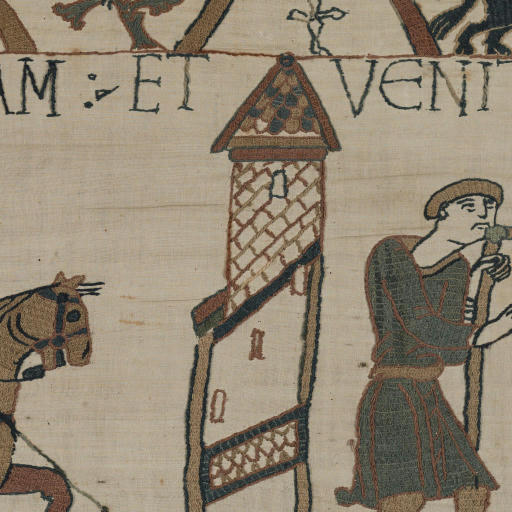 AM : ET VENIT